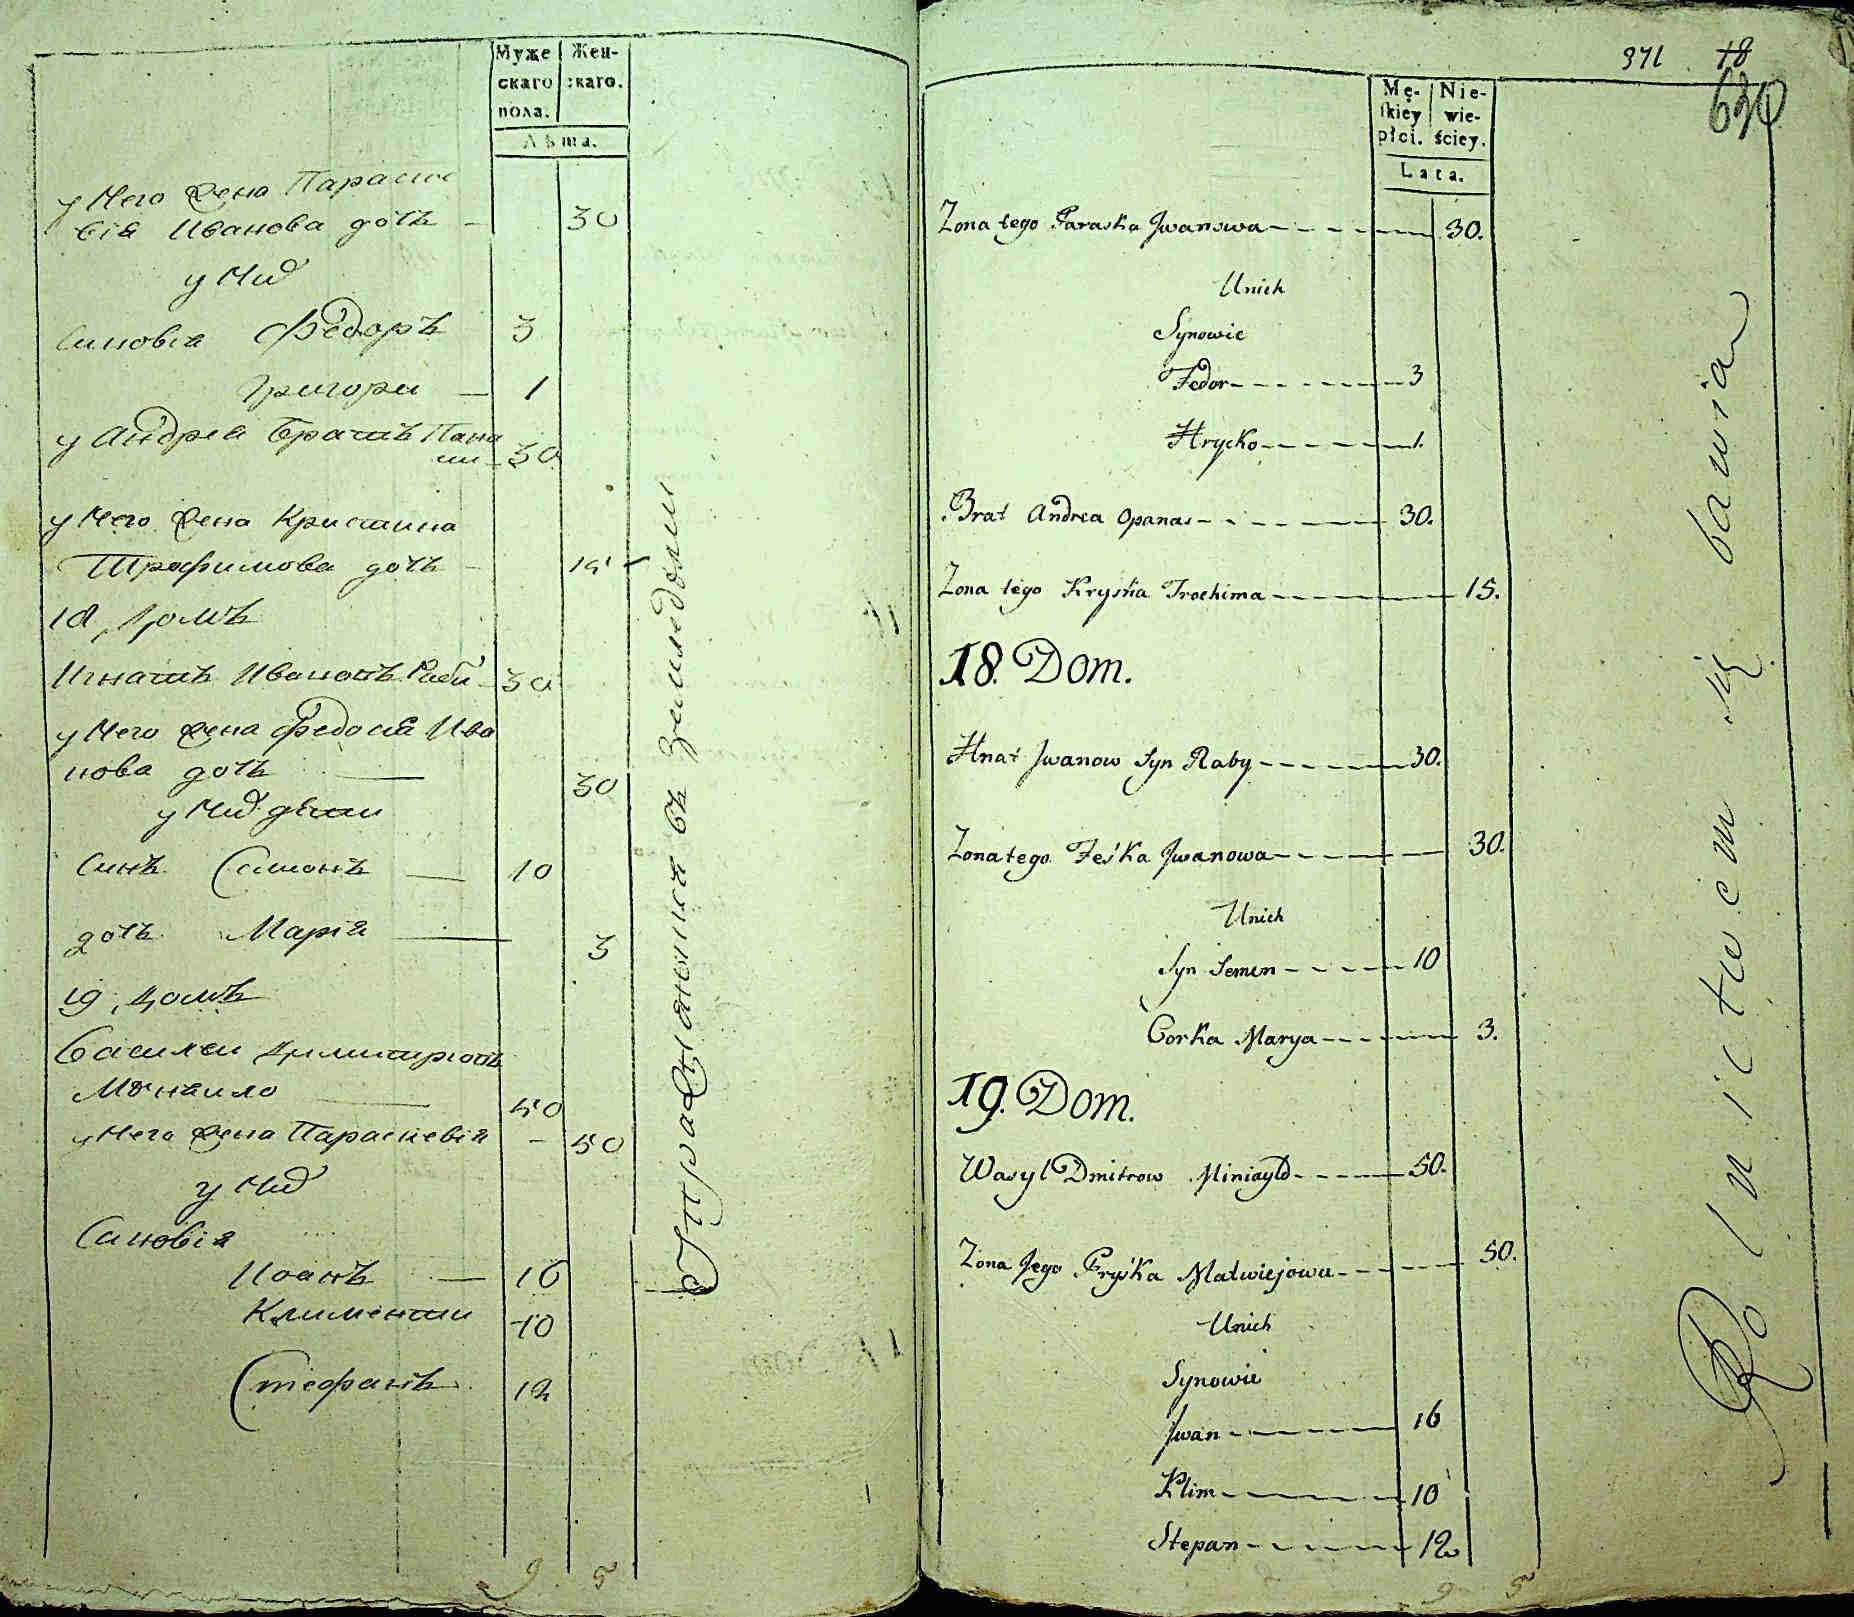 Муже Жен-
скаго скаго.
пола.
Лѣта.
у Него Жена Параске
вія Иванова дочь - 30
у Них
Синовіа Федоръ 3
Григори — 1
у Андрея Братъ Пана
си - 30
у Него Жена Кристина
Трофимова дочь - 15
18 Домъ
Игнатъ Ивановъ Раби - 30
у Него Жена Федосіа Ива
нова дочь — 30
у Них дѣти
Синъ Симонъ — 10
дочь Марія — 3
19 Домъ
Василеи Димитріовъ
50
у Него Жена Параскевія - 50
у Них
Синовія
Иоанъ — 16
Климентии 10
Стефанъ 12
9 5
Упражняются въ земледѣлии
371 18
630
Mę- Nie-
skiey wie-
płci. ściey.
Lata.
Zona tego Paraska Jwanowa 30.
Unich
Synowie
Fedor 3
Hrycko 1.
Brat Andrea Opanas 30.
Zona tégo Kryśka Trochima 15.
18. Dom.
Hnat Jwanow Syn Raby 30.
Zona tego Feśka Jwanowa 30.
Unich
Syn Semen 10
Córka Marya 3.
19. Dom.
Wasyl Dmitrow Miniayło 50.
Zona Jego Pryśka Matwiejowa 50.
Unich
Synowie
Jwan 16
Klim 10
Stepan 12
9 5
Rolnictwem się bawia